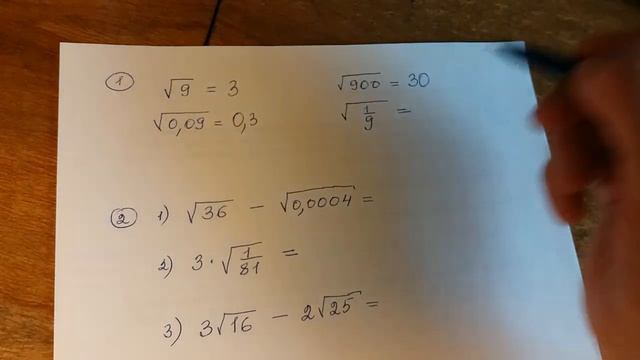 ① √9 = 3 √900 = 30
√0,09 = 0,3 √(1/9) =
② 1) √36 − √0,0004 =
2) 3 · √(1/81) =
3) 3√16 − 2√25 =